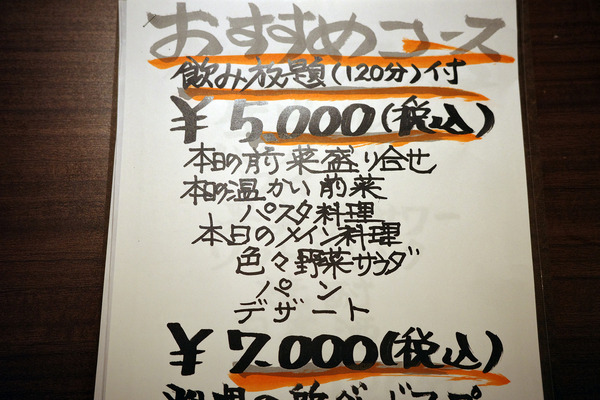 おすすめコース
飲み放題(120分)付
¥5,000(税込)
本日の前菜盛り合せ
本日の温かい前菜
パスタ料理
本日のメイン料理
色々野菜サラダ
パン
デザート
¥7.000(税込)